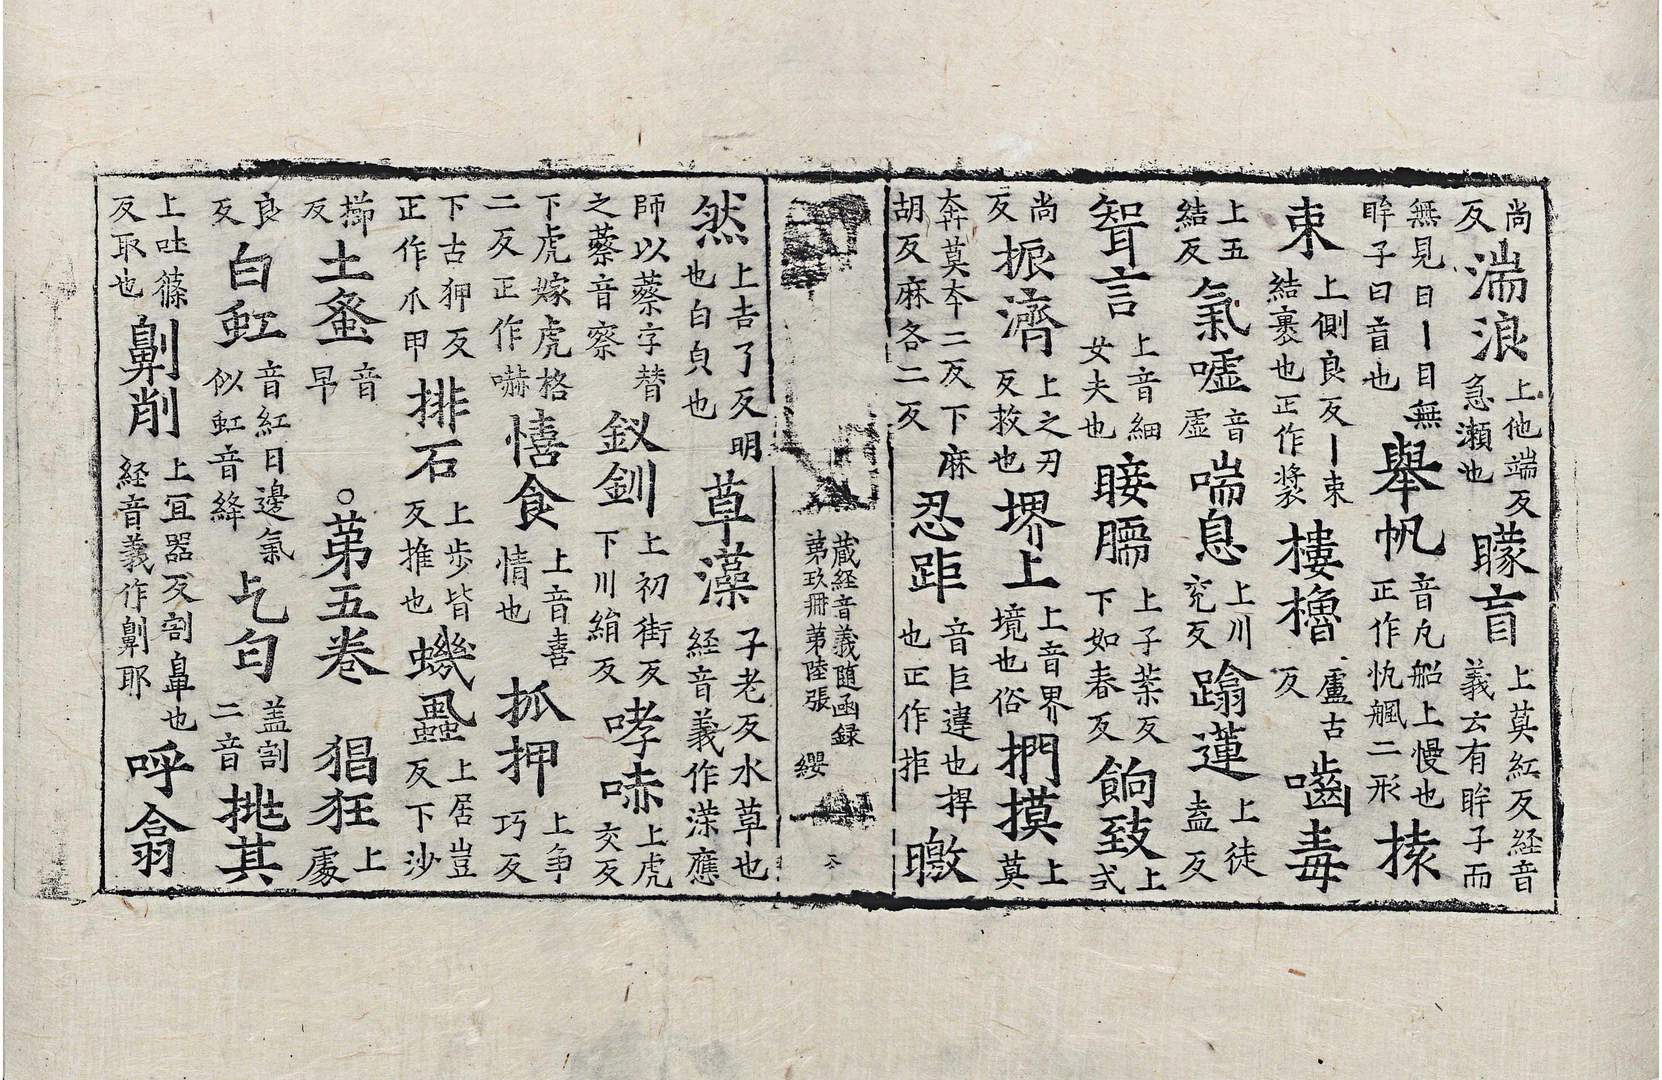 尚反湍浪上他端反急瀬也矇盲上莫紅反経音義云有眸子而
無見曰丨目無眸子曰盲也舉帆音凡舩上慢也正作㠶颿二形
束上側良反丨束結裹也正作裝樓櫓盧古反嚙毒
上五結反氣噓音虛喘息上川兖反蹹蓮上徒盍反
聟言上音細女夫也睫臑上子葉反下如春反餉致上式
尚反振濟上之刃反救也堺上上音界境也俗捫摸上莫
奔莫本二反下麻胡反麻各二反忍距音巨違也捍也正作拒曒
蔵経音義随函録
第玖冊第陸張 纓
然上吉了反明也白也皃也草藻子老反水草也経音義作渫應
師以蔡字替之蔡音察釵釧上初街反下川絹反哮上虎交反
下虎嫁虎格二反正作嚇憘食上音喜情也抓押上爭巧反
下古狎反正作爪甲排石上歩皆反推也蟣虱上居豈反下沙
擳反土蚤音早○第五卷 猖狂上處
良反白虹音紅日邊氣似虹音絳乞匄盖割二音挑其
上吐篠反取也劓削上冝器反割鼻也経音義作劓耶呼翕